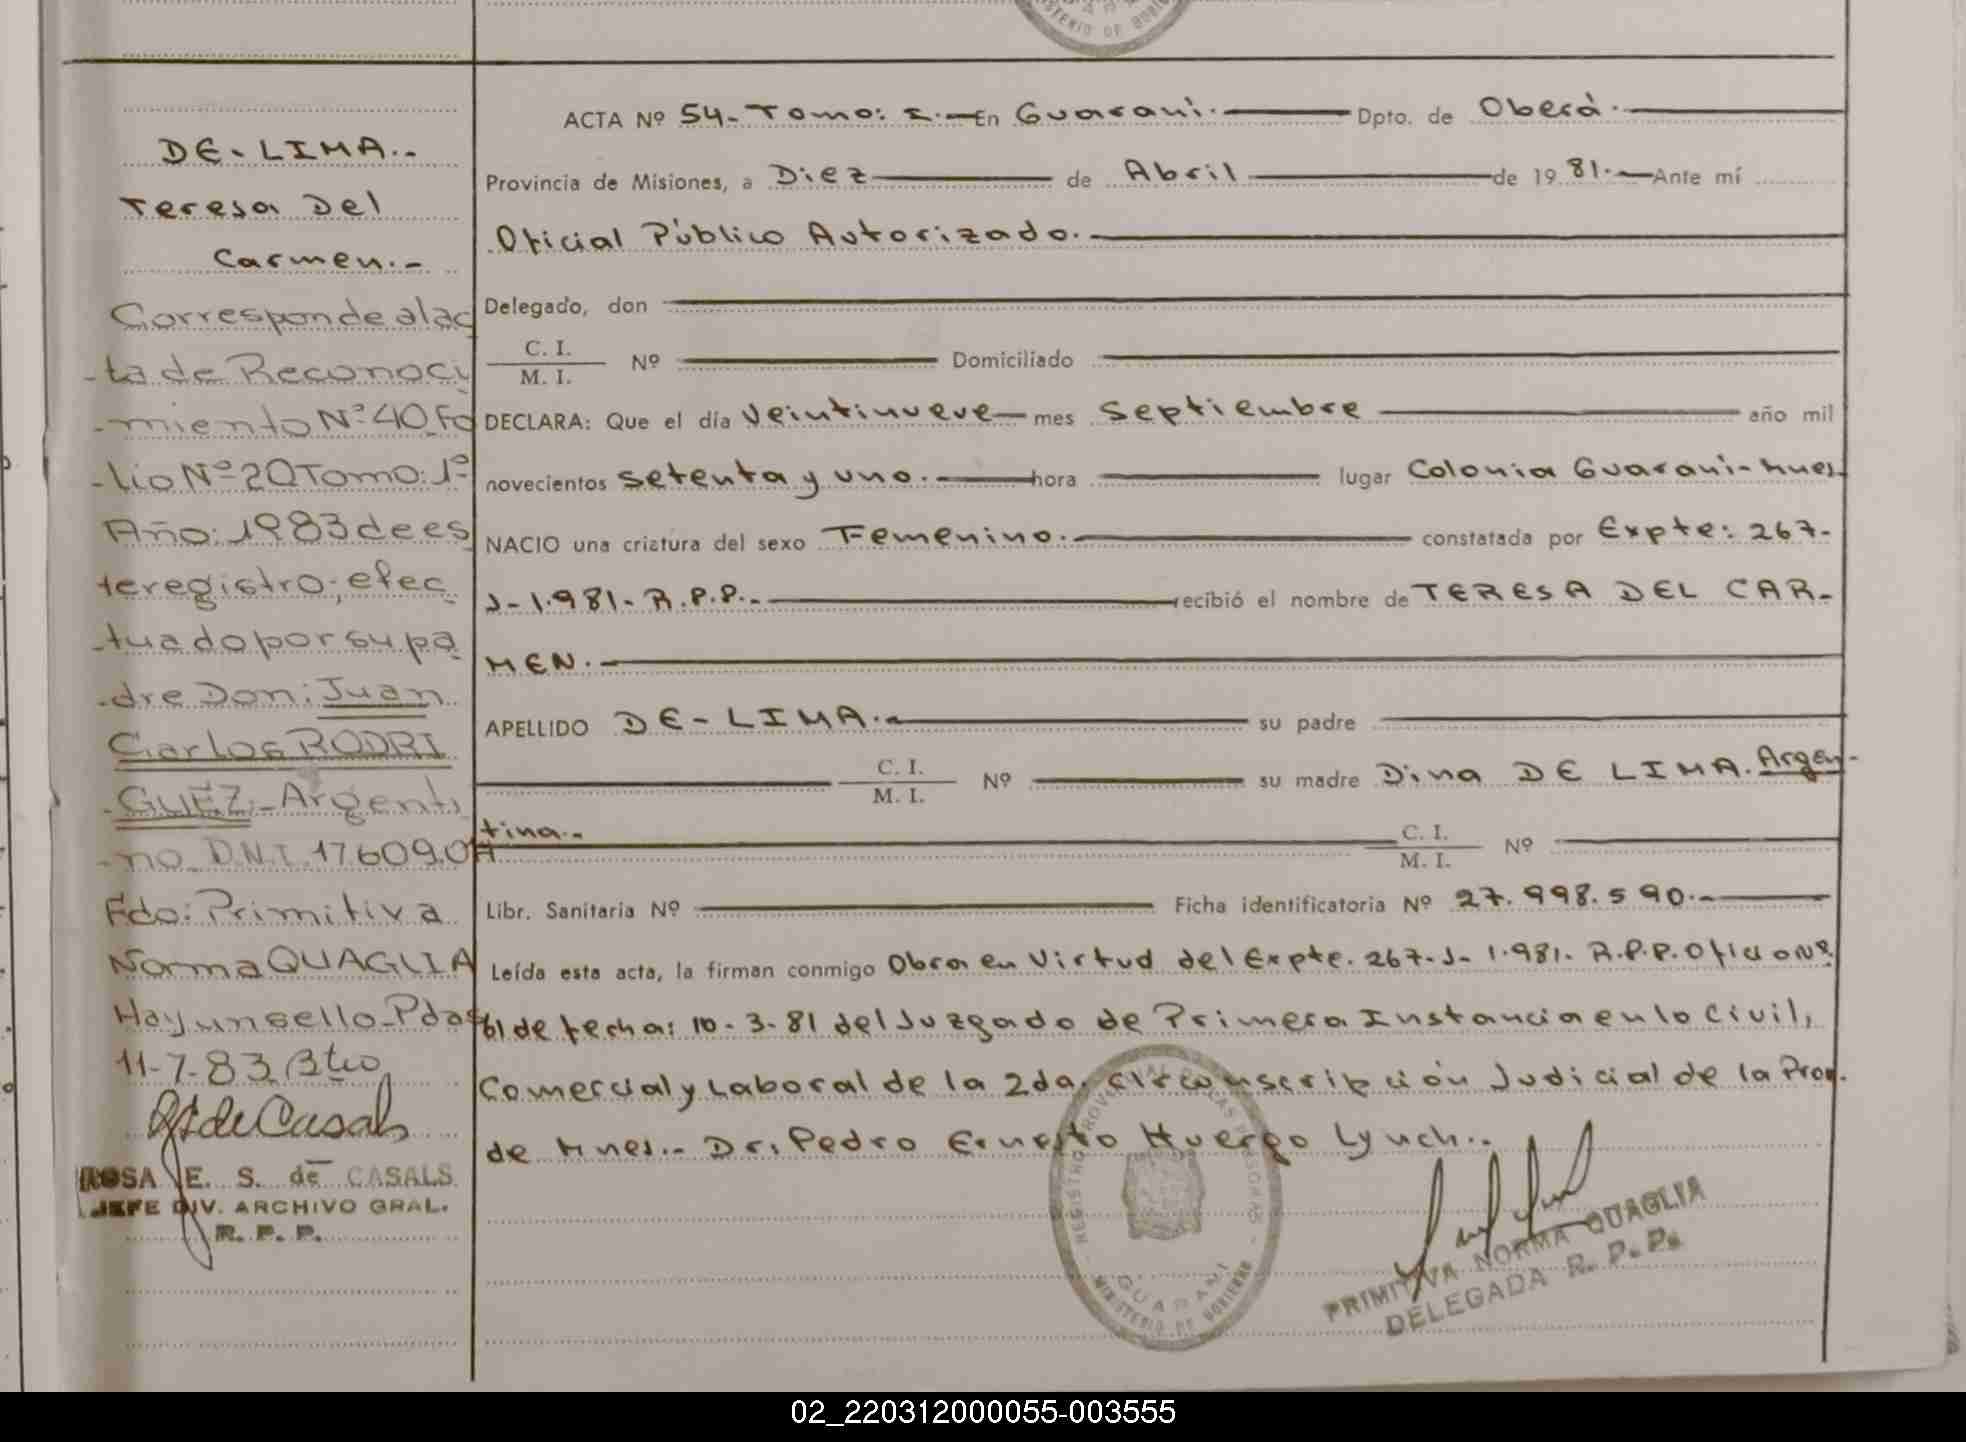 DE-LIMA.-
Teresa Del
Carmen.-
Corresponde al ac
-ta de Reconoci
-miento Nº 40 Fo
-lio Nº 20 Tomo: 1º
Año: 1983 de es
te registro; efec
-tuado por su pa
-dre Don: Juan
Carlos RODRI
-GUEZ.- Argenti
-no D.N.I. 17.609.0
Fdo: Primitiva
Norma QUAGLIA
Hay un sello. Pdas
11-7-83
ROSA E. S. de CASALS
JEFE DIV. ARCHIVO GRAL.
R. P. P.
ACTA Nº 54.- Tomo: I.- En Guaraní.- Dpto. de Oberá.-
Provincia de Misiones, a Diez de Abril de 1981.- Ante mí
Oficial Público Autorizado.-
Delegado, don
C. I.
M. I. Nº Domiciliado
DECLARA: Que el día Veintinueve mes Septiembre año mil
novecientos setenta y uno.- hora lugar Colonia Guaraní-Mnes.
NACIO una criatura del sexo Femenino.- constatada por Expte: 267-
J-1.981-R.P.P.- recibió el nombre de TERESA DEL CAR-
MEN.-
APELLIDO DE-LIMA.- su padre
C. I.
M. I. Nº su madre Dina DE LIMA. Argen-
tina.- C. I.
M. I. Nº
Libr. Sanitaria Nº Ficha identificatoria Nº 27.998.590.-
Leída esta acta, la firman conmigo Obra en Virtud del Expte. 267-J-1.981-R.P.P. Oficio Nº
61 de fecha: 10-3-81 del Juzgado de Primera Instancia en lo Civil,
Comercial y Laboral de la 2da. Circunscripción Judicial de la Prov.
de Mnes.- Dr. Pedro Ernesto Huergo Lynch.-
REGISTRO PROVINCIAL DE LAS PERSONAS
GUARANI
MINISTERIO DE GOBIERNO
PRIMITIVA NORMA QUAGLIA
DELEGADA R. P. P.
02_220312000055-003555